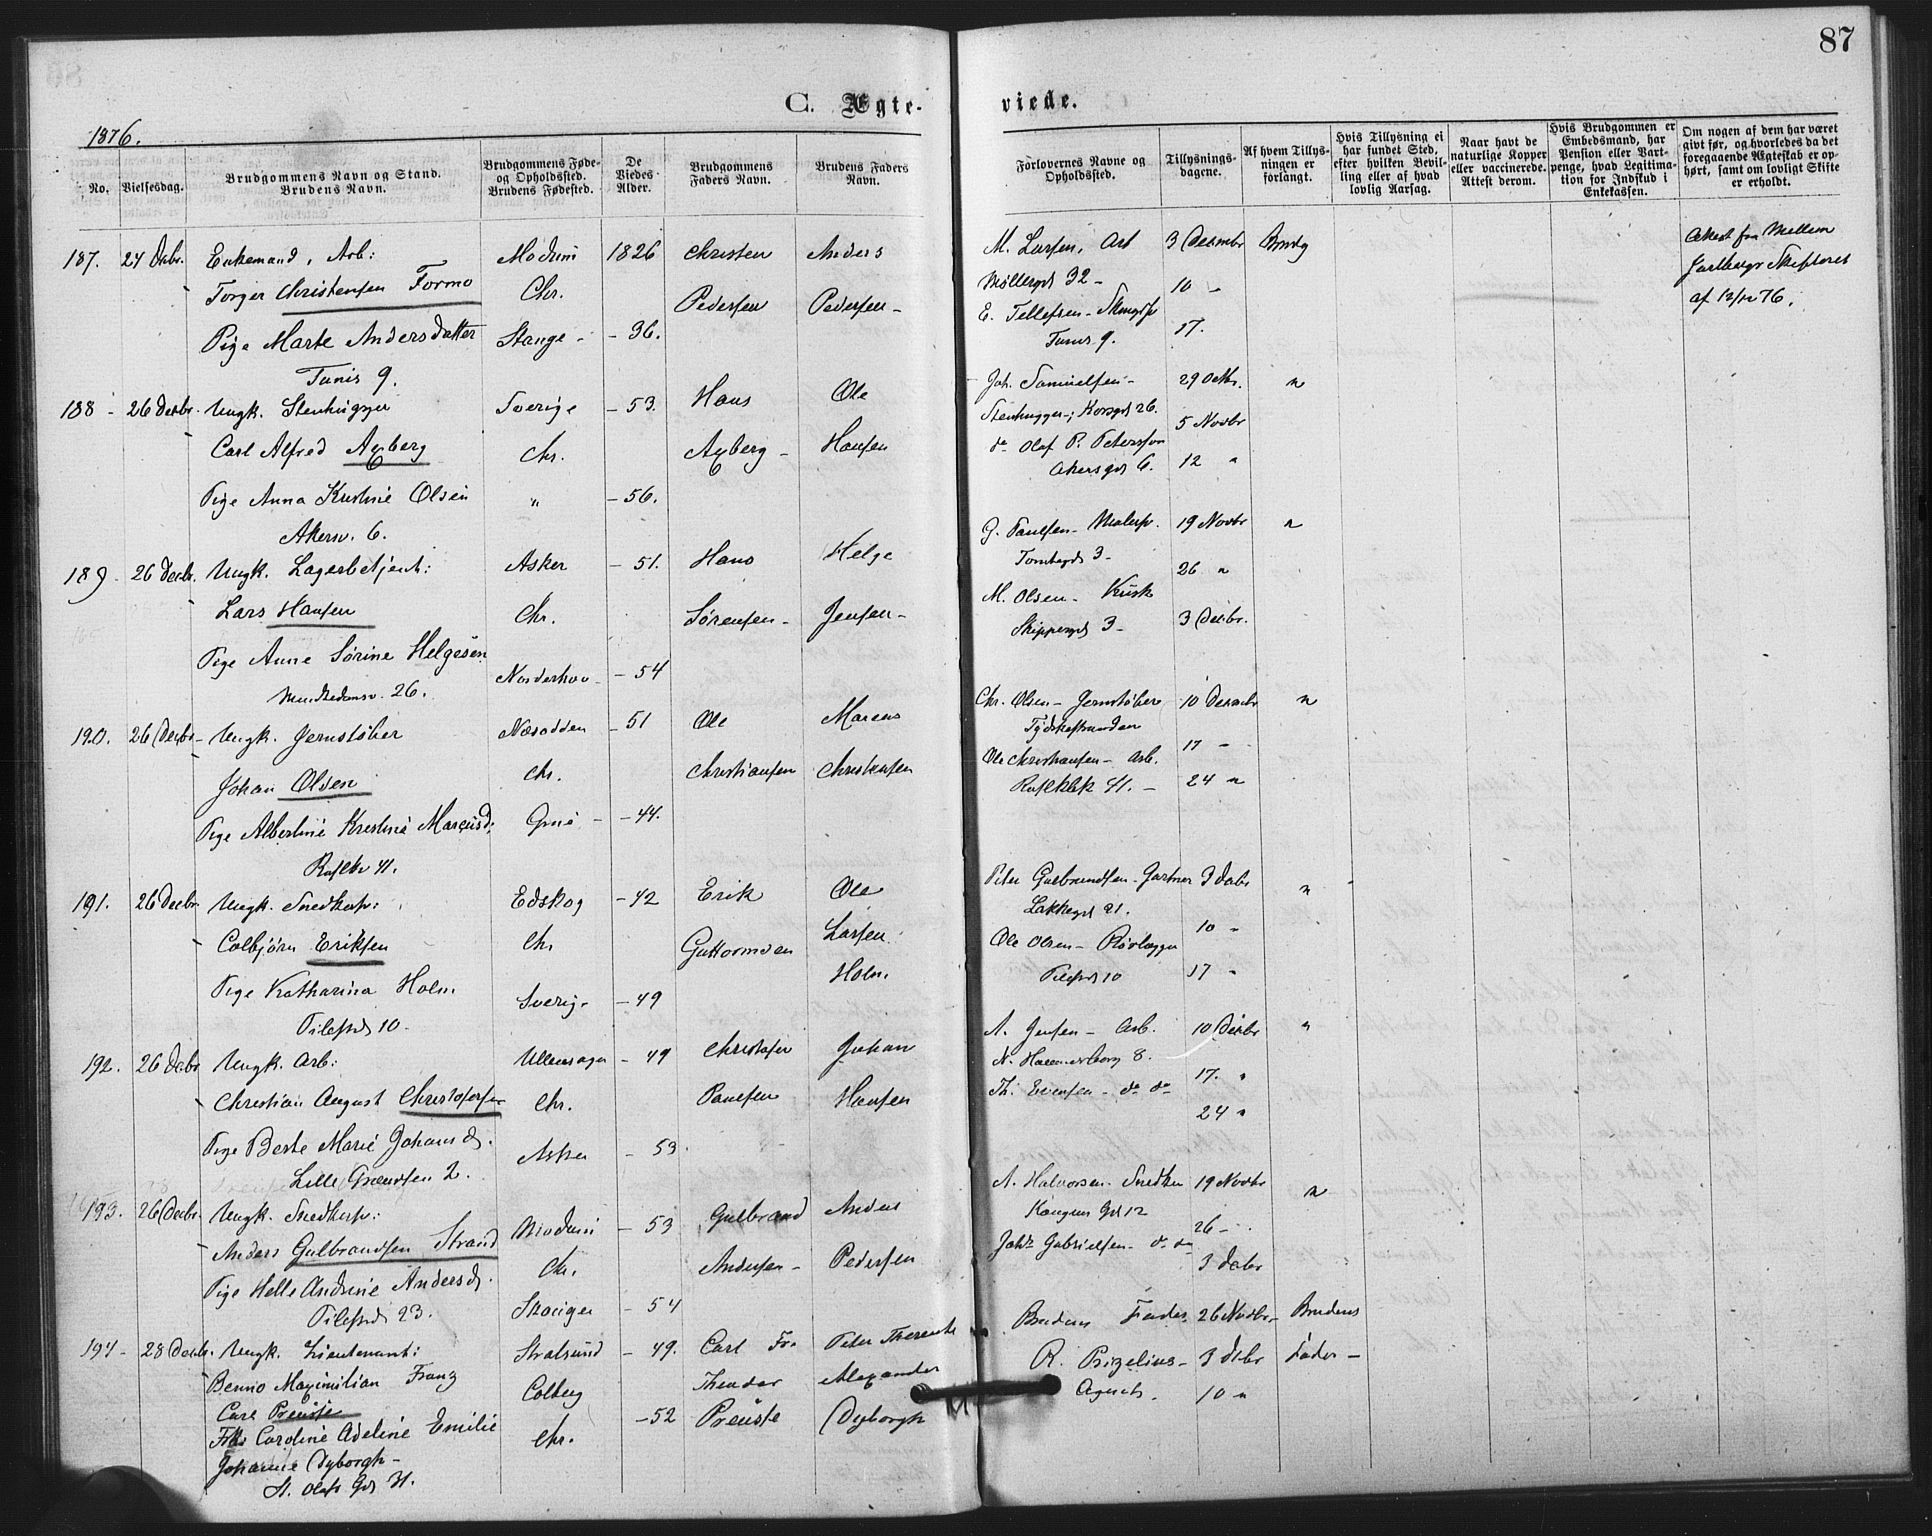 87
C. Ægte-
viede.
1876.
No.
Vielsesdag.
Brudgommens Navn og Stand.
Brudens Navn.
Brudgommens Føde-
og Opholdssted.
Brudens Fødested.
De
Viedes
Alder.
Brudgommens
Faders Navn.
Brudens Faders
Navn.
Forlovernes Navne og
Opholdssted.
Tillysnings-
dagene.
Af hvem Tillys-
ningen er
forlangt.
Hvis Tillysning ei
har fundet Sted,
efter hvilken Bevil-
ling eller af hvad
lovlig Aarsag.
Naar havt de
naturlige Kopper
eller vaccinerede.
Attest derom.
Hvis Brudgommen er
Embedsmand, har
Pension eller Vart-
penge, hvad Legitima-
tion for Indskud i
Enkekassen.
Om nogen af dem har været
givt før, og hvorledes da det
foregaaende Ægteskab er op-
hørt, samt om lovligt Skifte
er erholdt.
187. 24 Decbr. Enkemand, Arb: Modum 1826 Christen Anders
Torger Christensen Formo Chr. Pedersen Pedersen -
Pige Marte Andersdatter Stange - - 36.
Tunis 9.
M. Larsen, Arb 3 Dezembr Brudg
Møllergd 32 - 10 -
E. Tellefsen -
Tunis 9. 17.
Attest fra Mellem
Jarlsbergs Skifteret
af 12/12 76.
188 - 26 Decbr. Ungk. Stenhugger Sverige - 53. Hans Ole
Carl Alfred Axberg Chr. Axberg - Hansen
Pige Anna Kristine Olsen " - 56.
Akersv. 6.
Joh. Samuelsen - 29 Octbr. "
Stenhugger; Korsgd 26. 5 Novbr
do Olaf P. Petersson
Akersgd 6. 12 "
189 - 26 Decbr. Ungk. Lagerbetjent: Asker - 51. Hans Helge
Lars Hansen Chr. Sørensen - Jensen -
Pige Anne Sørine Helgesen Norderhov - 54
Munkedamsv. 26.
G. Paulsen - Malersv. 19 Novbr "
Tomtegd 3 - 26 "
M. Olsen - Kusk
Skippergd 3 - 3 Decbr.
190. 26 Decbr - Ungk. Jernstøber Næsodden - 51 Ole Marcus
Johan Olsen Chr. Christiansen Christensen
Pige Albertine Kristine Marcusd. Grue - - 44.
41.
Chr. Olsen - Jernstøber 10 Decembr "
Tydskestranden
Ole Christiansen - Arb. 17 -
41. - 24 "
191. 26 Decbr. Ungk. Snedkersv: Edskog - 42 Erik Ole
Colbjørn Eriksen Chr Guttormsen Larsen
Pige Katharina Holm Sverige - 49 Holm.
Pilestrd 10 -
Peter Gulbrandsen - Gartner 3 Decbr "
Lakkegd 21.
Ole Olsen - Rørlægger 10 "
Pilestrd 10 17 "
192. 26 Decbr Ungk. Arb: Ullensager - 49 Christofer Johan
Christian August Christofersen Chr. Paulsen Hansen
Pige Berte Marie Johansd. Asker - 53.
Lille Grændsen 2.
A. Jensen - Arb. 10 Decbr "
N. Hammersborg 8.
Th. Evensen - do do 17. "
24 "
193. 26 Decbr. Ungk. Snedkersv: Modum - 53 Gulbrand Anders
Anders Gulbrandsen Strand Chr. Andersen - Pedersen
Pige Helle Andrine Andersd. Skouger - 54
Pilestrd 23.
A. Halvorsen - Snedker 19 Novbr "
Kongens Gd 12 26 -
Johs Gabrielsen - do do
3 Decbr
194 - 28 Decbr. Ungk. Lieutenant: Stralsund - 49. Carl Fr. Peter
Benno Maximilian Franz Colberg Theodor Alexander
Carl Preuste - 52 Preuste Dyborgh
Frk. Caroline Adeline Emilie Chr.
Johanne Dyborgh -
St. Olafs Gd 31.
Brudens Fader. 26 Novbr - Brudens
R. Prizelius - 3 Decbr Fader -
Agent. 10 "